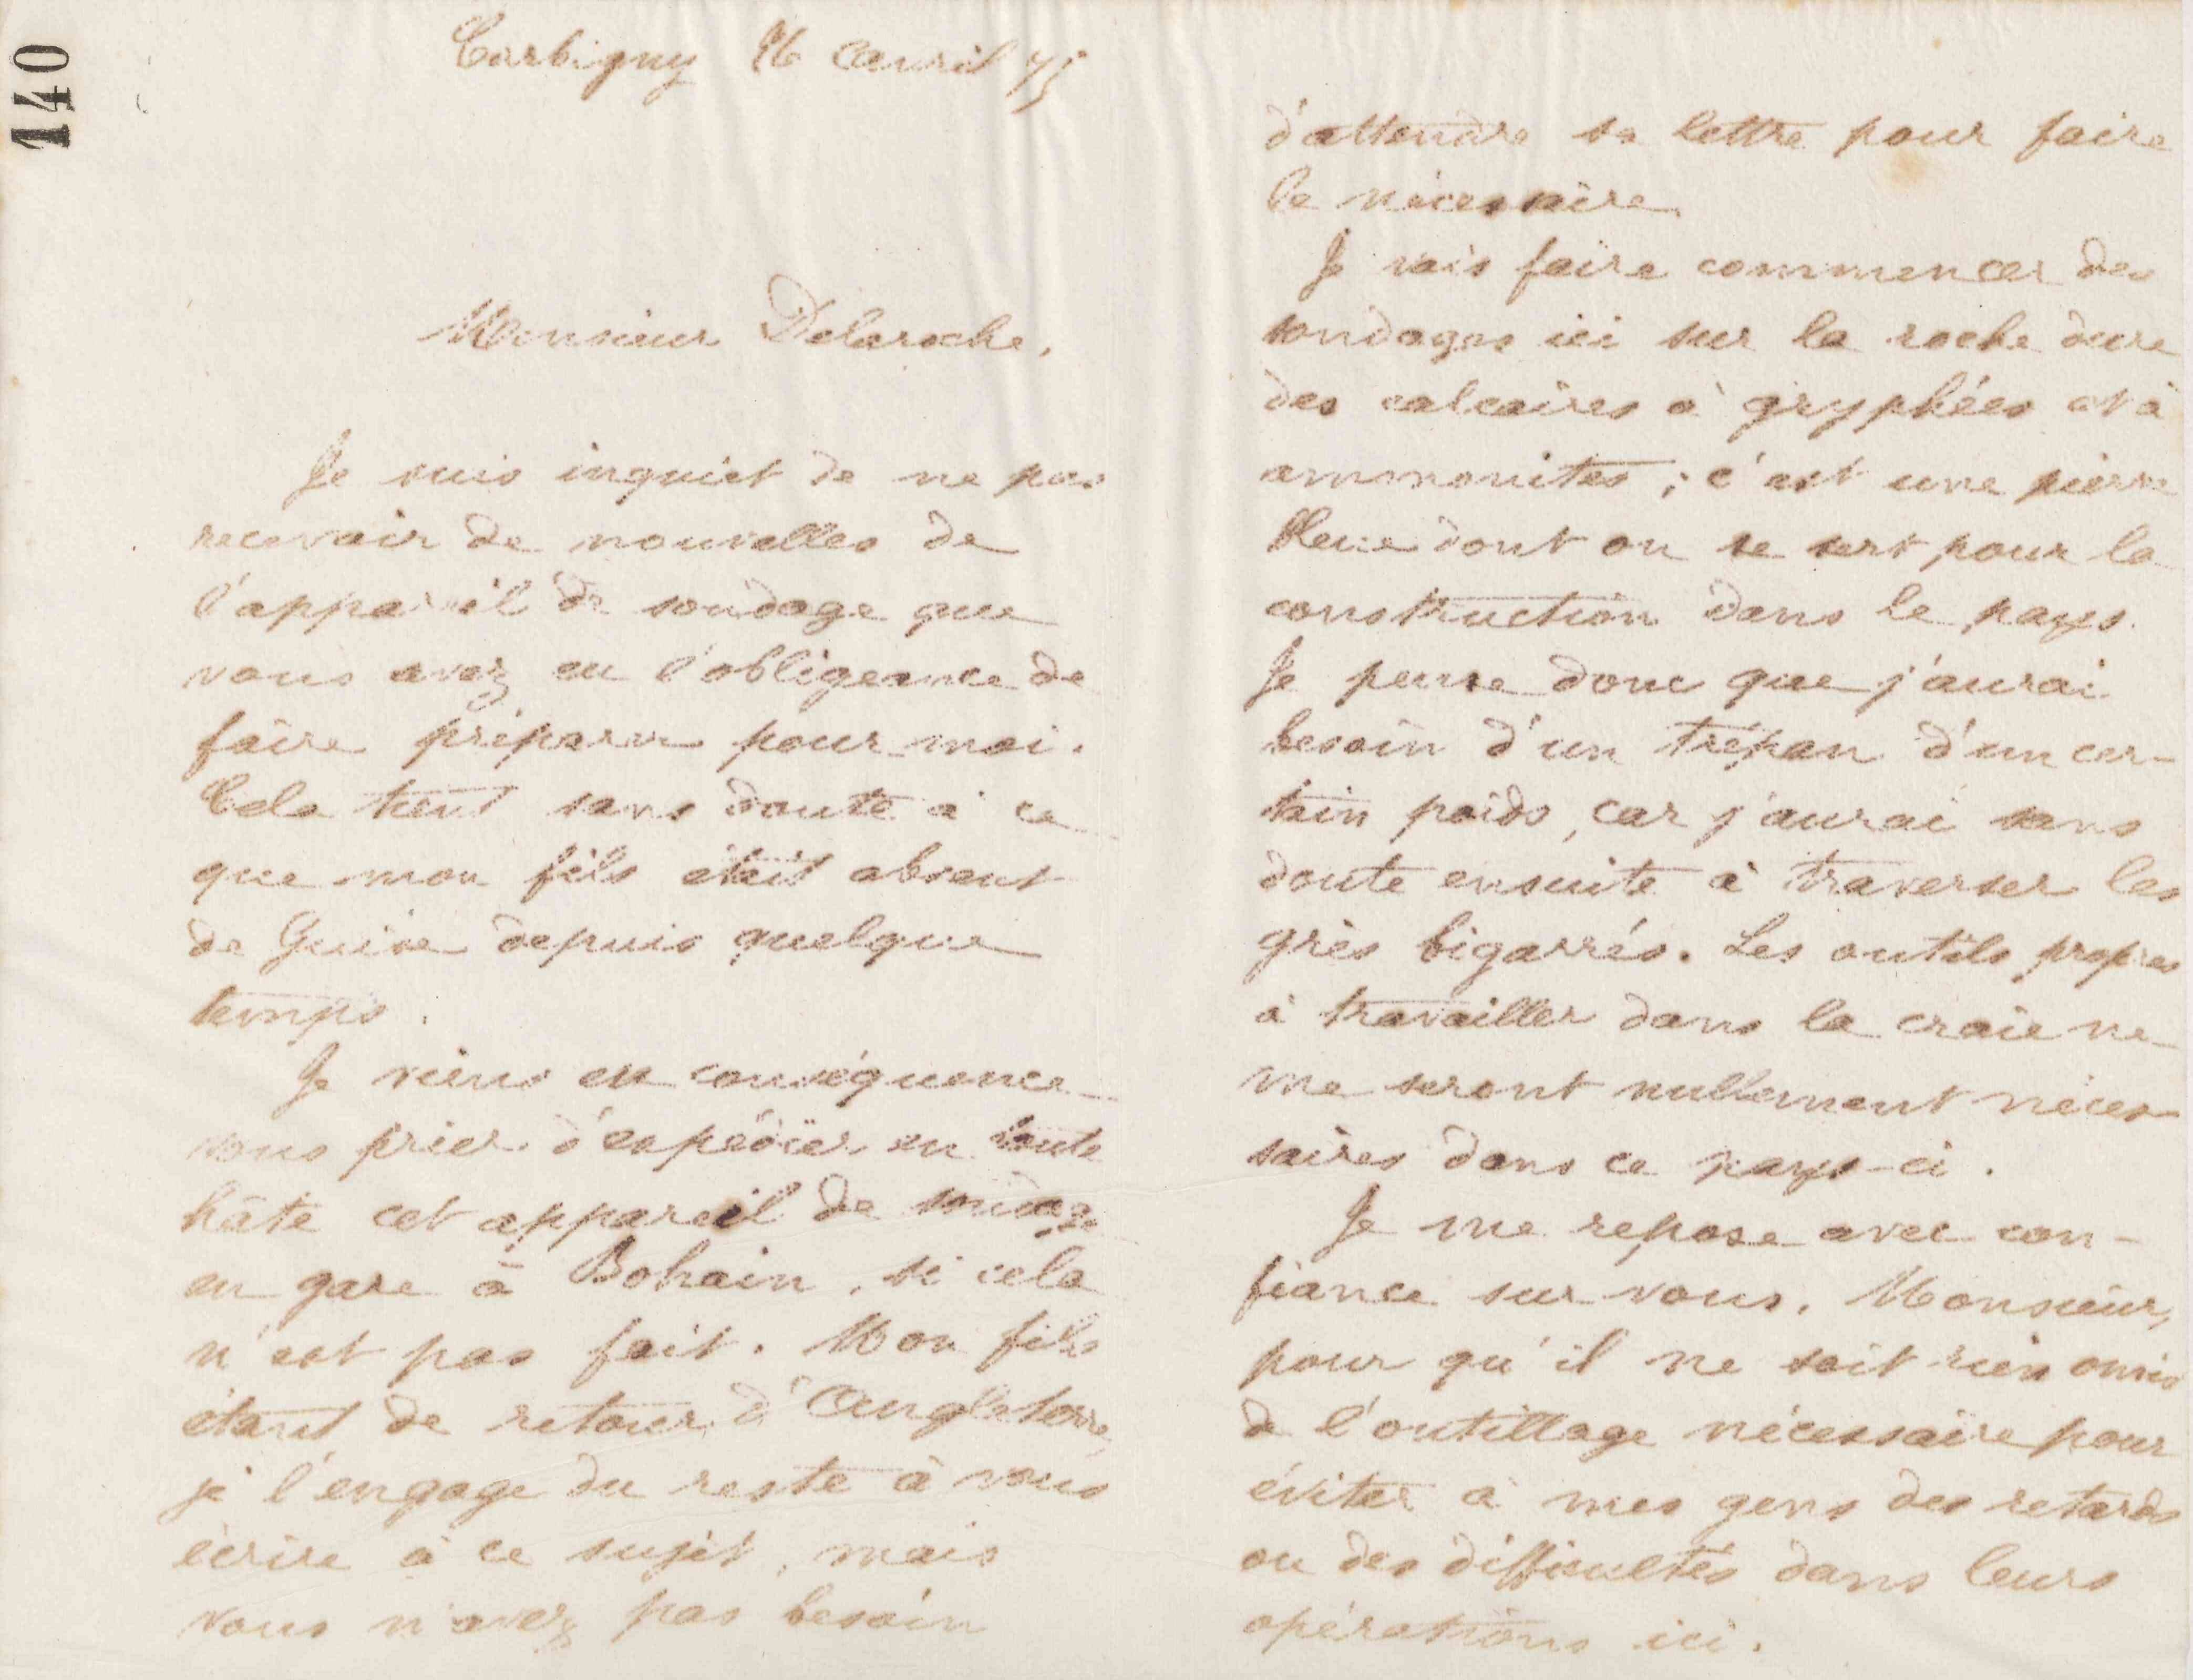 140
Corbigny 26 avril 75
Monsieur Delaroche,
Je suis inquiet de ne pas
recevoir de nouvelles de
l'appareil de sondage que
vous avez eu l'obligeance de
faire préparer pour moi.
Cela tient sans doute à ce
que mon fils était absent
de Guise depuis quelque
temps.
Je viens en conséquence
vous prier d'expédier en toute
hâte cet appareil de sondage
en gare à Bohain, si cela
n'est pas fait. Mon fils
étant de retour d'Angleterre,
je l'engage du reste à vous
écrire à ce sujet, mais
vous n'avez pas besoin
d'attendre sa lettre pour faire
le nécessaire.
Je vais faire commencer des
sondages ici sur la roche dure
des calcaires à gryphées et à
ammonites; c'est une pierre
bleue dont on se sert pour la
construction dans le pays.
Je pense donc que j'aurai
besoin d'un trépan d'un cer-
tain poids, car j'aurai sans
doute ensuite à traverser les
grès bigarrés. Les outils propres
à travailler dans la craie ne
me seront nullement néces
saires dans ce pays-ci.
Je me repose avec con-
fiance sur vous, Monsieur,
pour qu'il ne soit rien omis
de l'outillage nécessaire pour
éviter à mes gens des retards
ou des difficultés dans leurs
opérations ici.